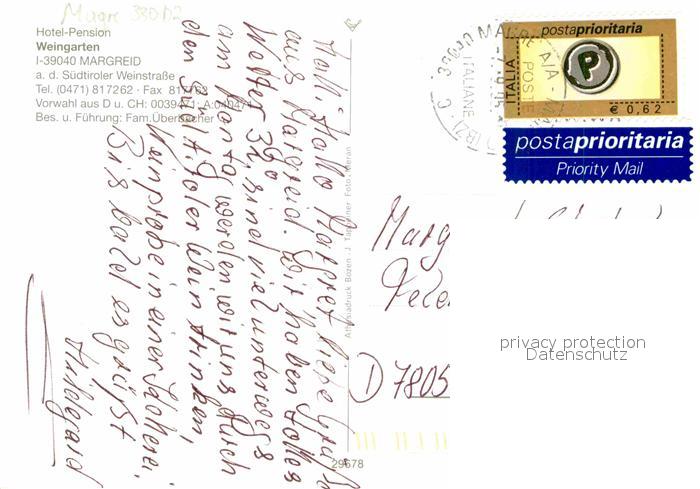 Magre 330D2
Hotel-Pension
Weingarten
I-39040 MARGREID
a. d. Südtiroler Weinstraße
Tel. (0471) 817262 - Fax 817762
Vorwahl aus D u. CH: 0039471; A:040471
Bes. u. Führung: Fam. Überbacher
Hallo Margret, liebe Grüße
aus Margreid. Wir haben tolles
Wetter 32° sind viel unterwegs
am Montag werden wir uns durch
den Südtiroler Wein trinken,
Weinprobe in einer Kellerei,
Bis bald es grüßt
Hildegard
Athesiadruck Bozen - J. Foto Meran
29678
MAGRE
ITALIANE
POSTE
(BZ)
postaprioritaria
ITALIA
P
€ 0,62
postaprioritaria
Priority Mail
Marg
D 7805
privacy protection
Datenschutz